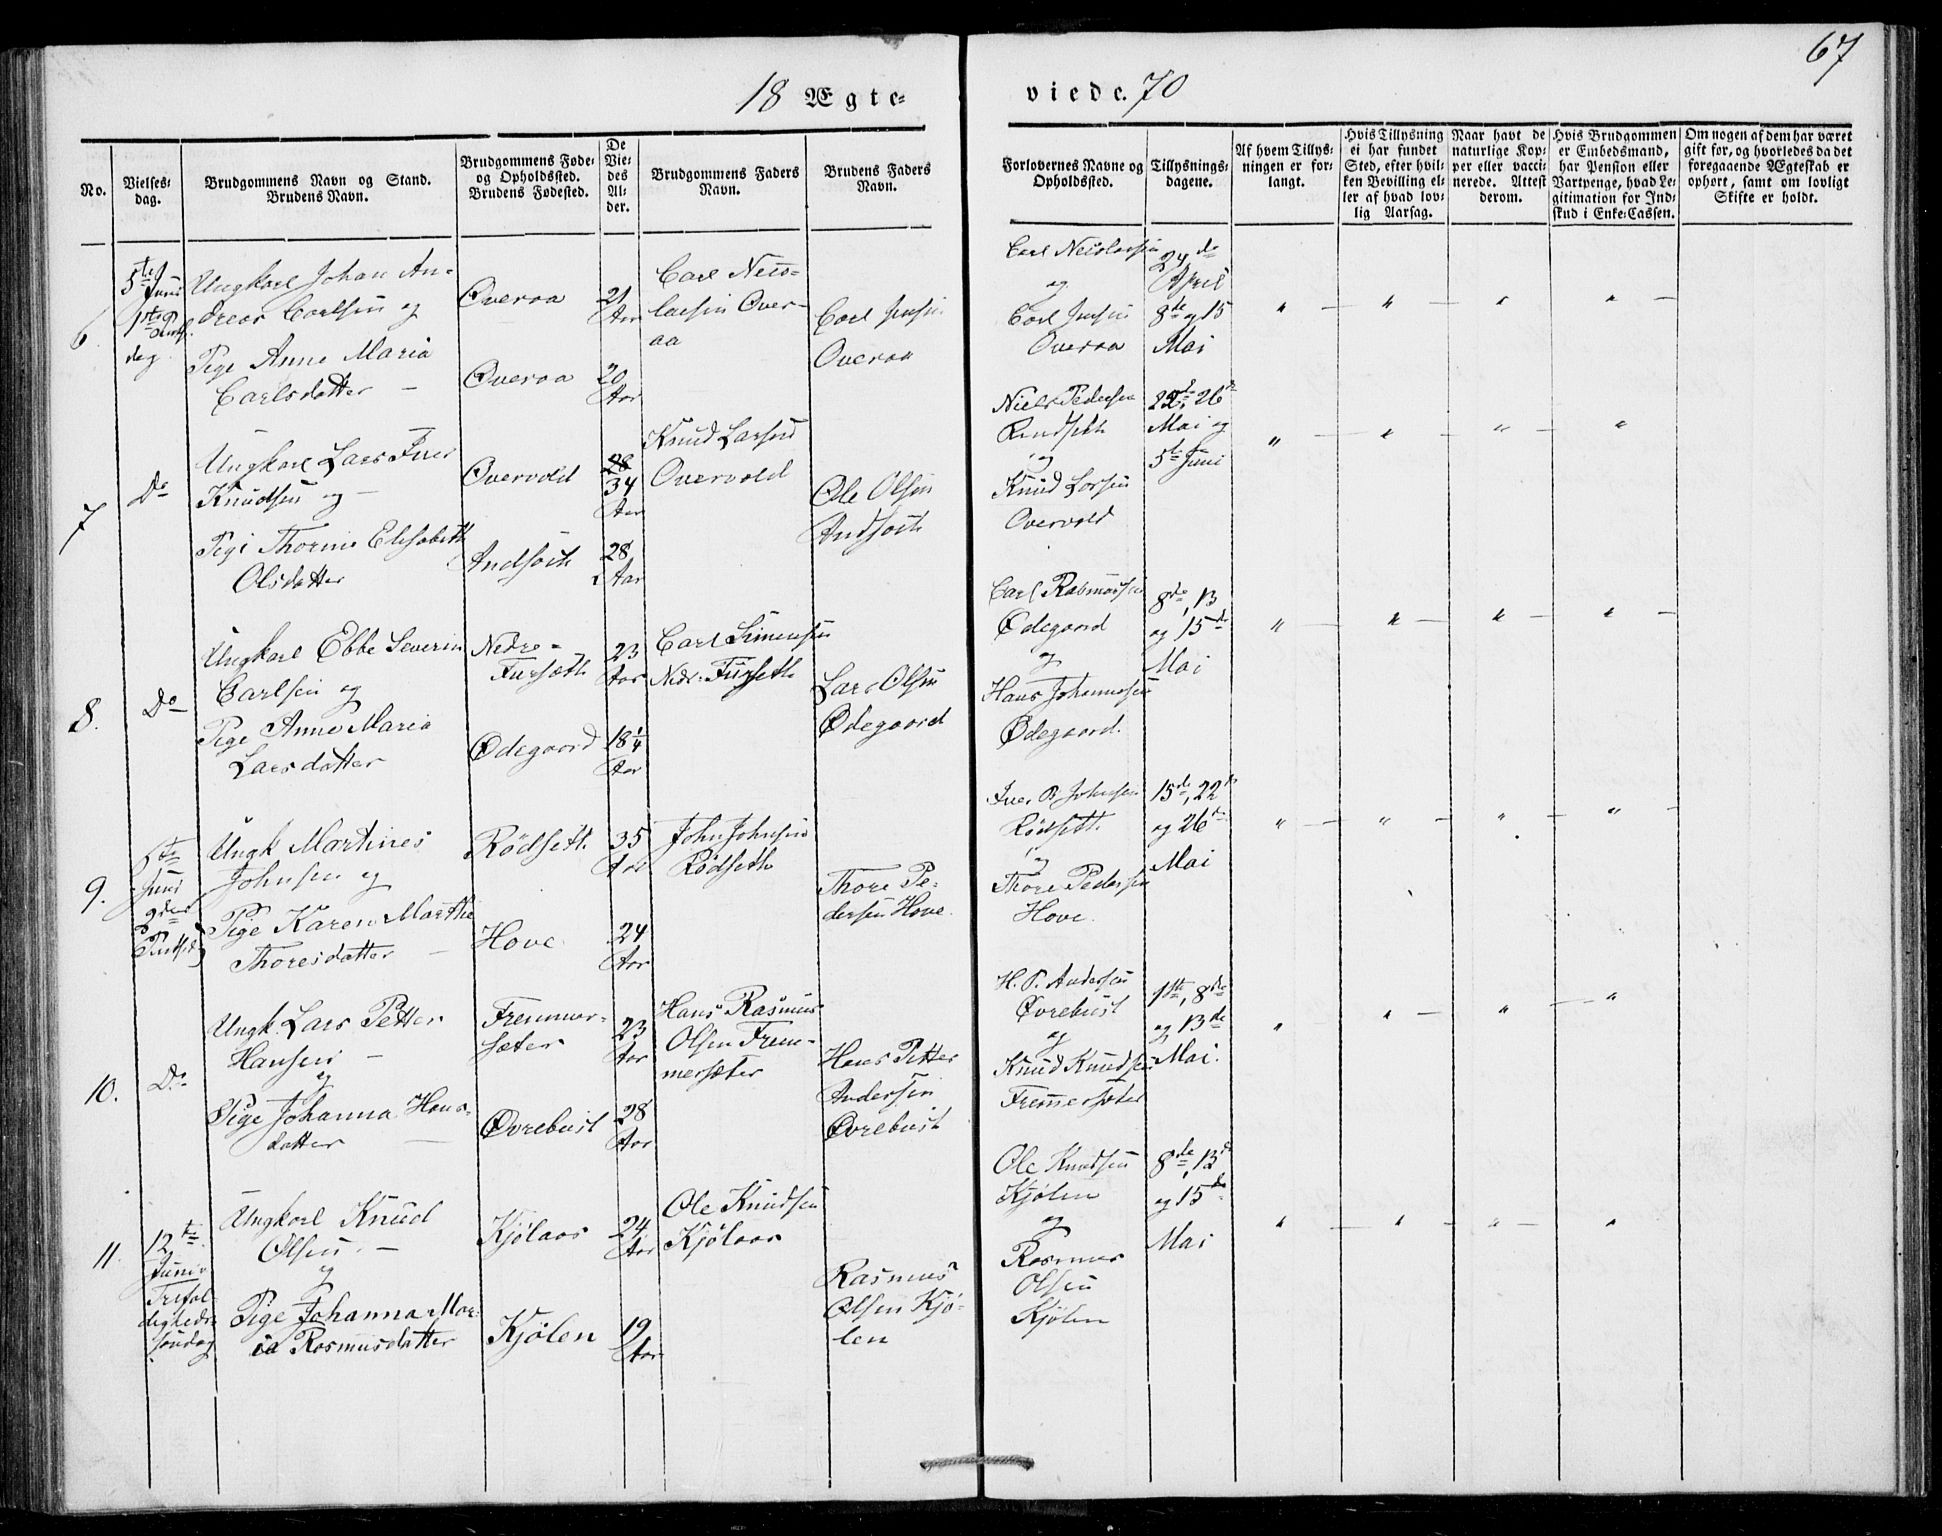 67
18 Ægte-
viede. 70
No.
Vielses-
dag.
Brudgommens Navn og Stand.
Brudens Navn.
Brudgommens Føde-
og Opholdssted.
Brudens Fødested.
De
Vie-
des
Al-
der.
Brudgommens Faders
Navn.
Brudens Faders
Navn.
Forlovernes Navne og
Opholdssted.
Tillysnings-
dagene.
Af hvem Tillys-
ningen er for-
langt.
Hvis Tillysning
ei har fundet
Sted, efter hvil-
ken Bevilling el-
ler af hvad lov-
lig Aarsag.
Naar havt de
naturlige Kop-
per eller vacci-
nerede. Attest
derom.
Hvis Brudgommen
er Embedsmand,
har Pension eller
Vartpenge, hvad Le-
gitimation for Ind-
skud i Enke-Cassen.
Om nogen af dem har været
gift før, og hvorledes da det
foregaaende Ægteskab er
ophørt, samt om lovligt
Skifte er holdt.
6
5te
Juni
1ste
dag
Ungkarl Johan An-
dreas Carlsen og
Pige Anne Maria
Carlsdatter —
Øveraa
Øveraa
21
Aar
20
Aar
Carl Nico-
laisen Øver-
aa
Carl Jensen
Overaa
Carl Nicolaisen
og
Carl Jensen
Overaa
24de
April
8de og 15
Mai
" — " — " — " —
7
Do
Ungkarl Lars Iver
Knudsen og —
Pige Thorine Elisabeth
Olsdatter
Overvold
Andsøth
28
34
Aar
28
Aar
Knud Larsen
Overvold
Ole Olsen
Andsøth
Niels Pedersen
og
Knud Larsen
Overvold
22de, 26de
Mai og
5te Juni
" — " — " — "
8.
Do
Ungkarl Ebbe Severin
Carlsen og
Pige Anne Maria
Larsdatter
Nedre-
Fursæth
Ødegaard
23
Aar
18 1/4
Aar
Carl Simensen
Nedr: Furseth
Lars Olsen
Ødegaard
Carl Rasmussen
Ødegaard
og
Hans Johannesen
Ødegaard.
8de, 13
og 15de
Mai
" — " — " — " —
9.
6te
Juni
2den
Ungk Martines
Johnsen og
Pige Karen Marthe
Thoresdatter —
Rödseth
Hove
35
Aar
24
Aar
John Johnsen
Rödseth
Thore Pe-
dersen Hove.
Iver P. Johnsen
Rødseth.
og
Thore Pedersen
Hove.
15de, 22de
og 26de
Mai
" — " — " — "
10.
Do
Ungk. Lars Petter
Hansen —
og
Pige Johanna Hans-
datter —
Fremmer-
sæter
Øvrebust
23
Aar
28
Aar
Hans Rasmus
Olsen Frem-
mersæter
Hans Petter
Andersen
Øvrebust
H. P. Andersen
Øvrebust
og
Knud Knudsen
Fremmersæter
1ste, 8de
og 13de
Mai.
" " — " — "
11.
12te
Juni
Trefol-
digheds
søndag
Ungkarl Knud
Olsen. —
og
Pige Johanna Mar-
ia Rasmusdatter
Kjølaas
Kjølen
24
Aar
19
Aar
Ole Knudsen
Kjølaas
Rasmus
Olsen Kjø-
len
Ole Knudsen
Kjølen
og
Rasmus
Olsen
Kjølen
8de, 13de
og 15de
Mai
" — " — " — "